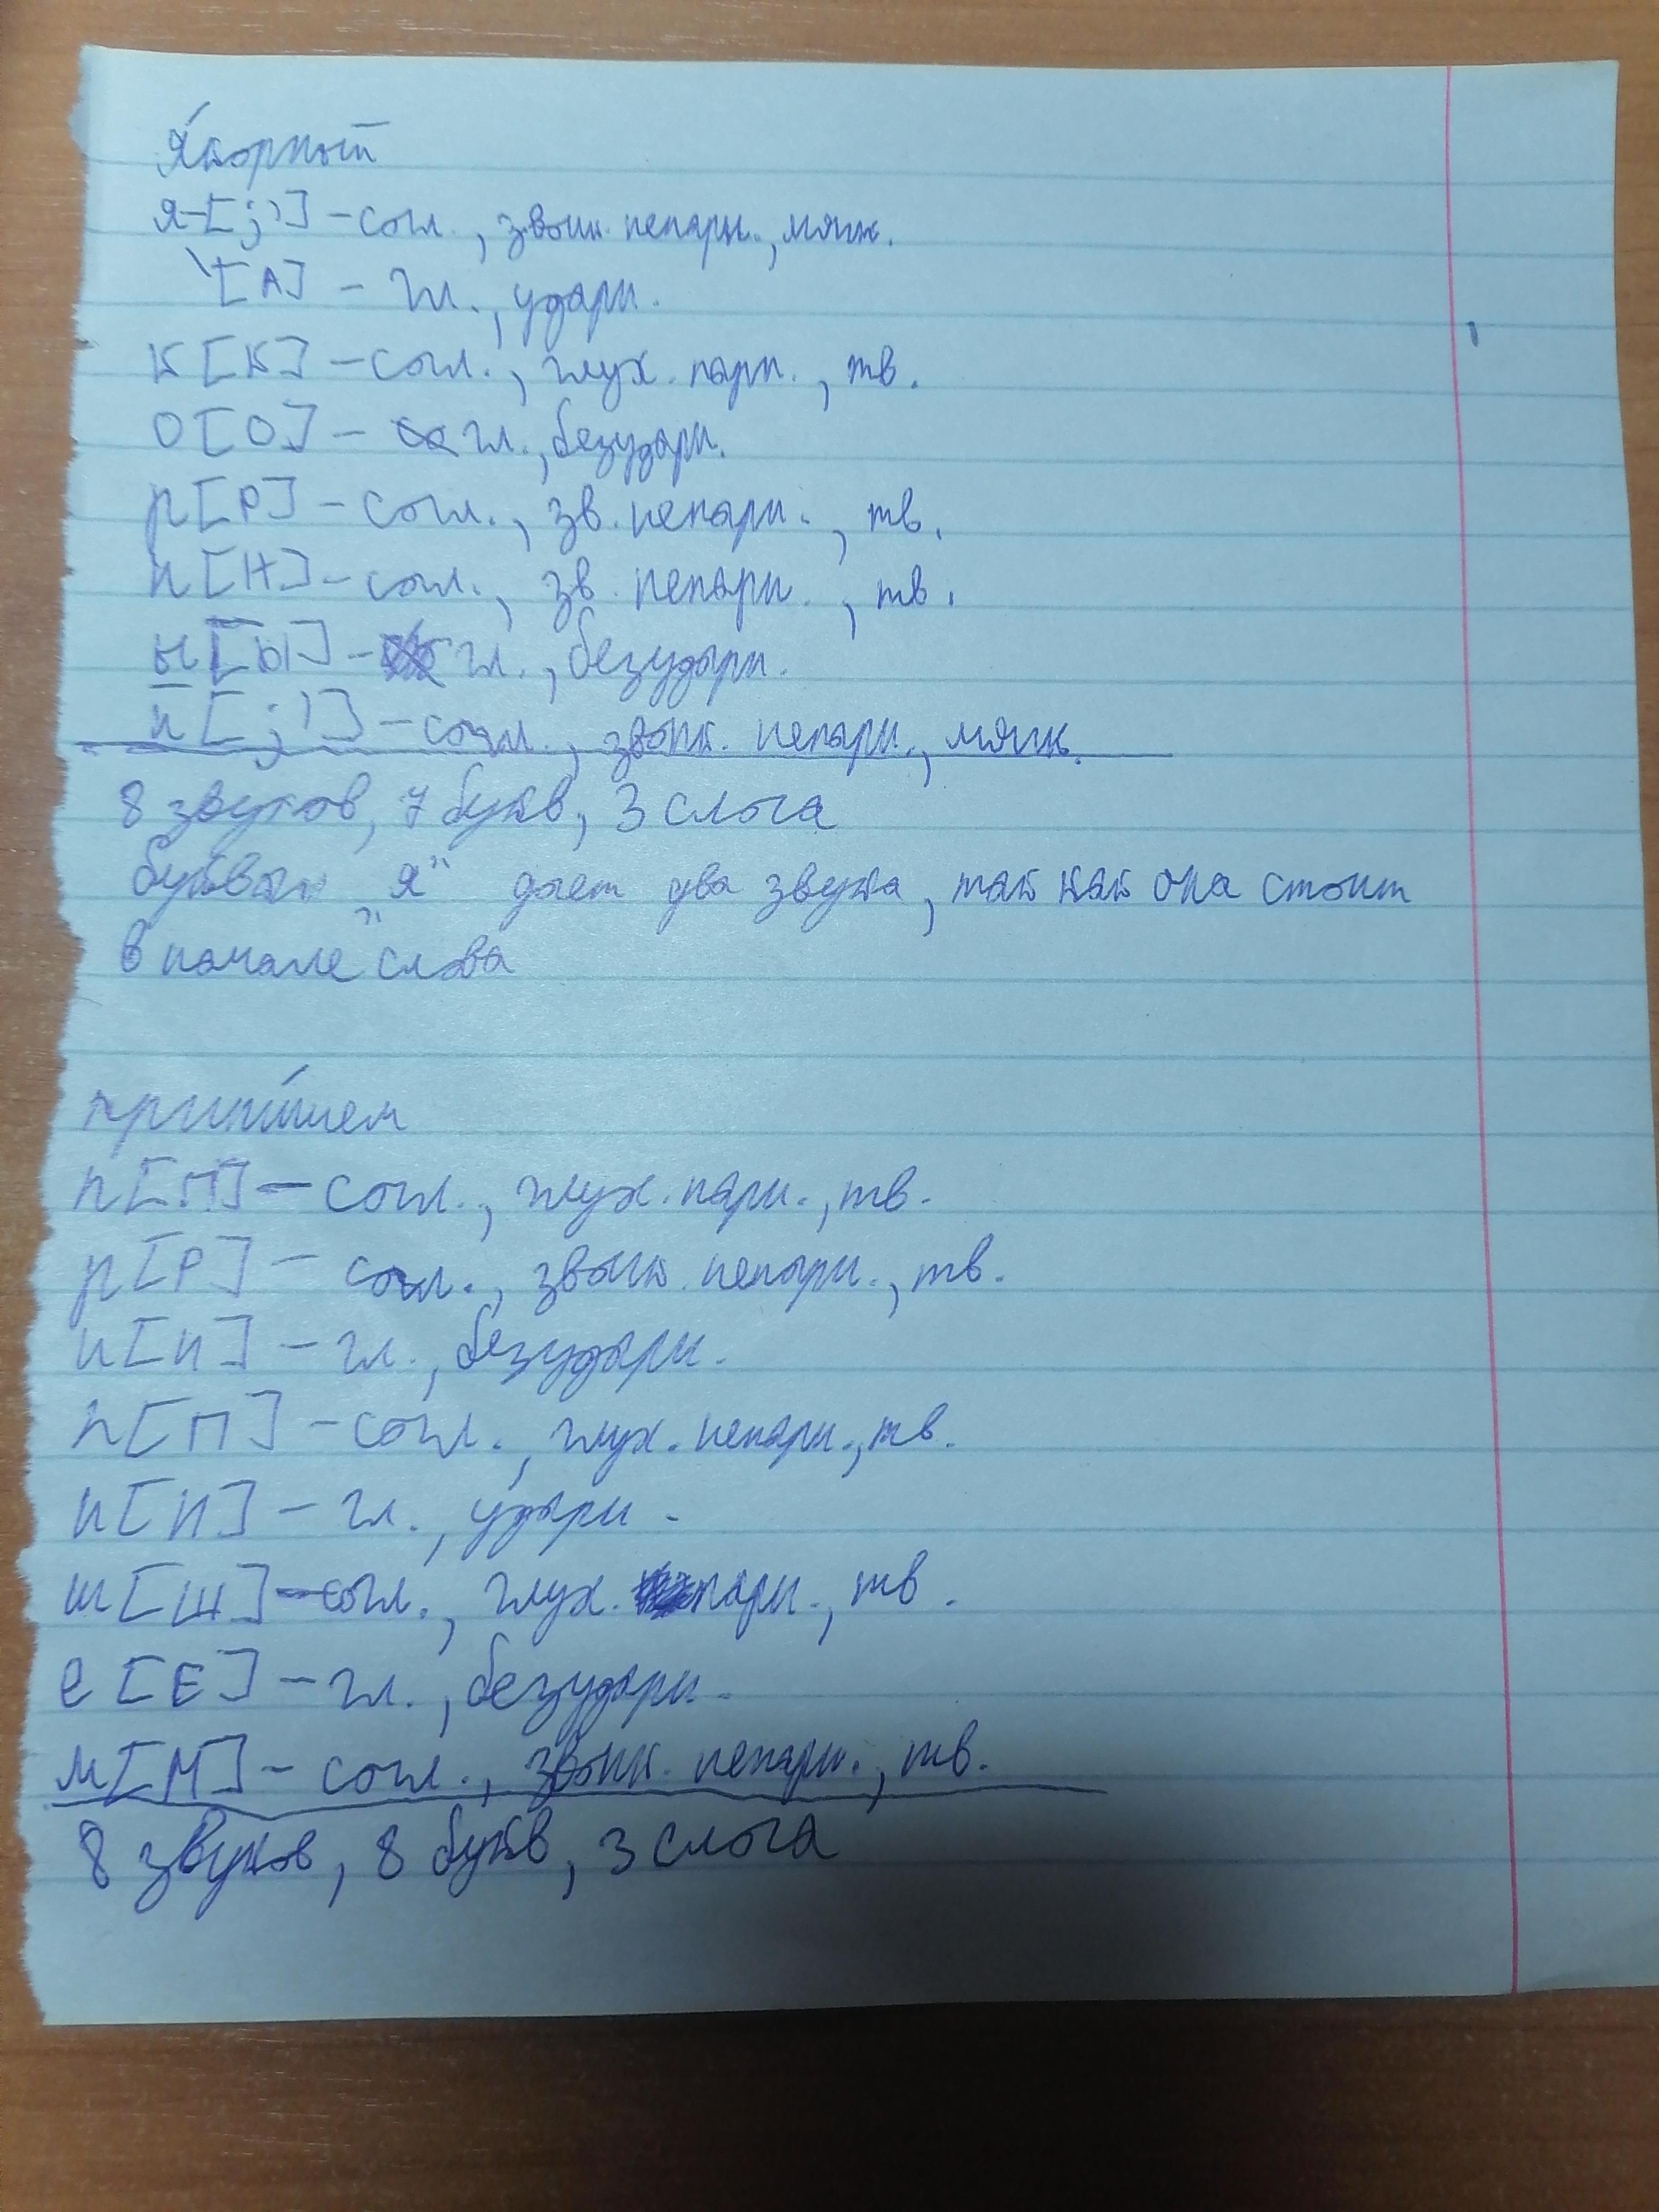 Я́корный
я-[j'] - согл., звонк. непарн., мягк.
[А] - гл., ударн.
к [К] - согл., глух. парн., тв.
о [О] - гл., безударн.
р [Р] - согл., зв. непарн., тв.
н [Н] - согл., зв. непарн., тв.
ы [Ы] - гл., безударн.
й [j'] - согл., звонк. непарн., мягк.
8 звуков, 7 букв, 3 слога
буквы „я" дает два звука, так как она стоит
в начале слова
припи́шем
п [П] - согл., глух. парн., тв.
р [Р] - согл., звонк. непарн., тв.
и [И] - гл., безударн.
п [П] - согл., глух. непарн., тв.
и [И] - гл., ударн.
ш [Ш] - согл., глух. парн., тв.
е [Е] - гл., безударн.
м [М] - согл., звонк. непарн., тв.
8 звуков, 8 букв, 3 слога